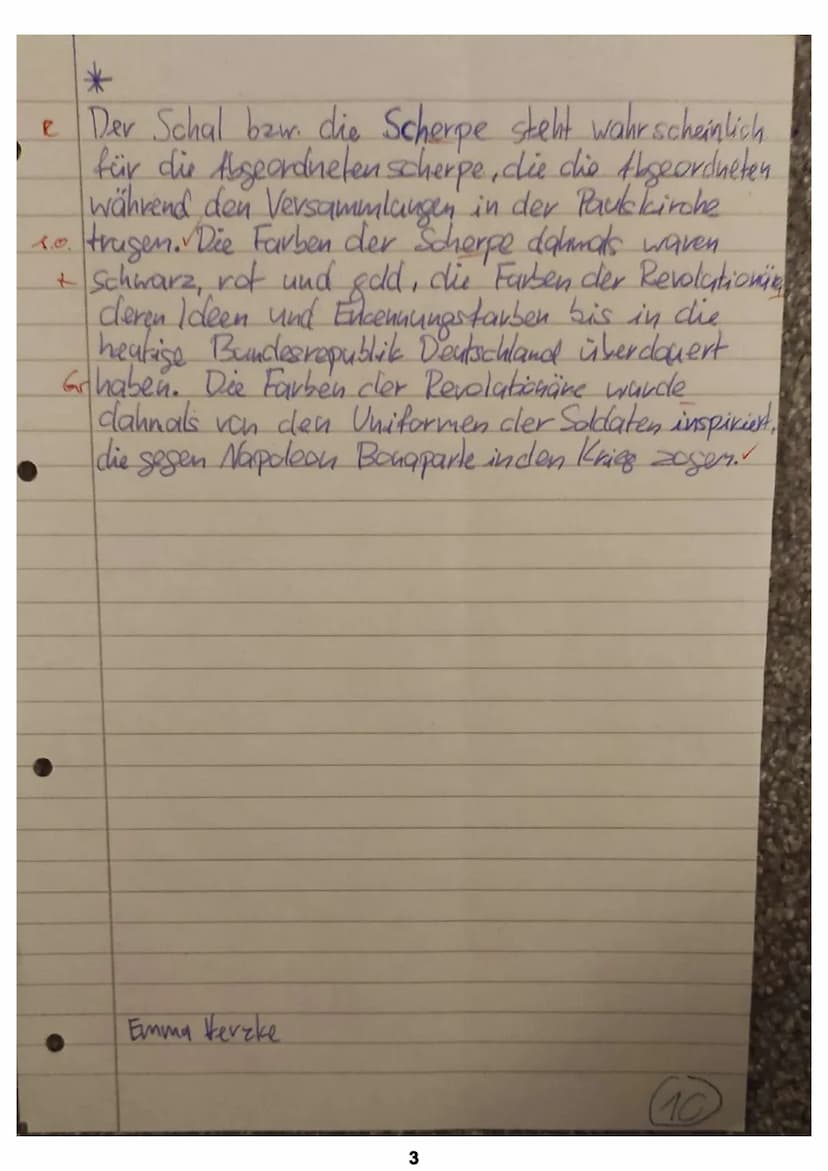 *
R Der Schal bzw. die Scherpe steht wahrscheinlich
für die Abgeordnetenscherpe, die die Abgeordneten
während den Versammlungen in der Paulskirche
s.o. trugen. ✓ Die Farben der Scherpe dahmals waren
+ schwarz, rot und gold, die Farben der Revolutionäre
deren Ideen und Erkennungsfarben bis in die
heutige Bundesrepublik Deutschland überdauert
Gr haben. Die Farben der Revolutionäre wurde
dahmals von den Uniformen der Soldaten inspiriert,
die gegen Napoleon Bonaparte in den Krieg zogen. ✓
Emma Herzke
10
3